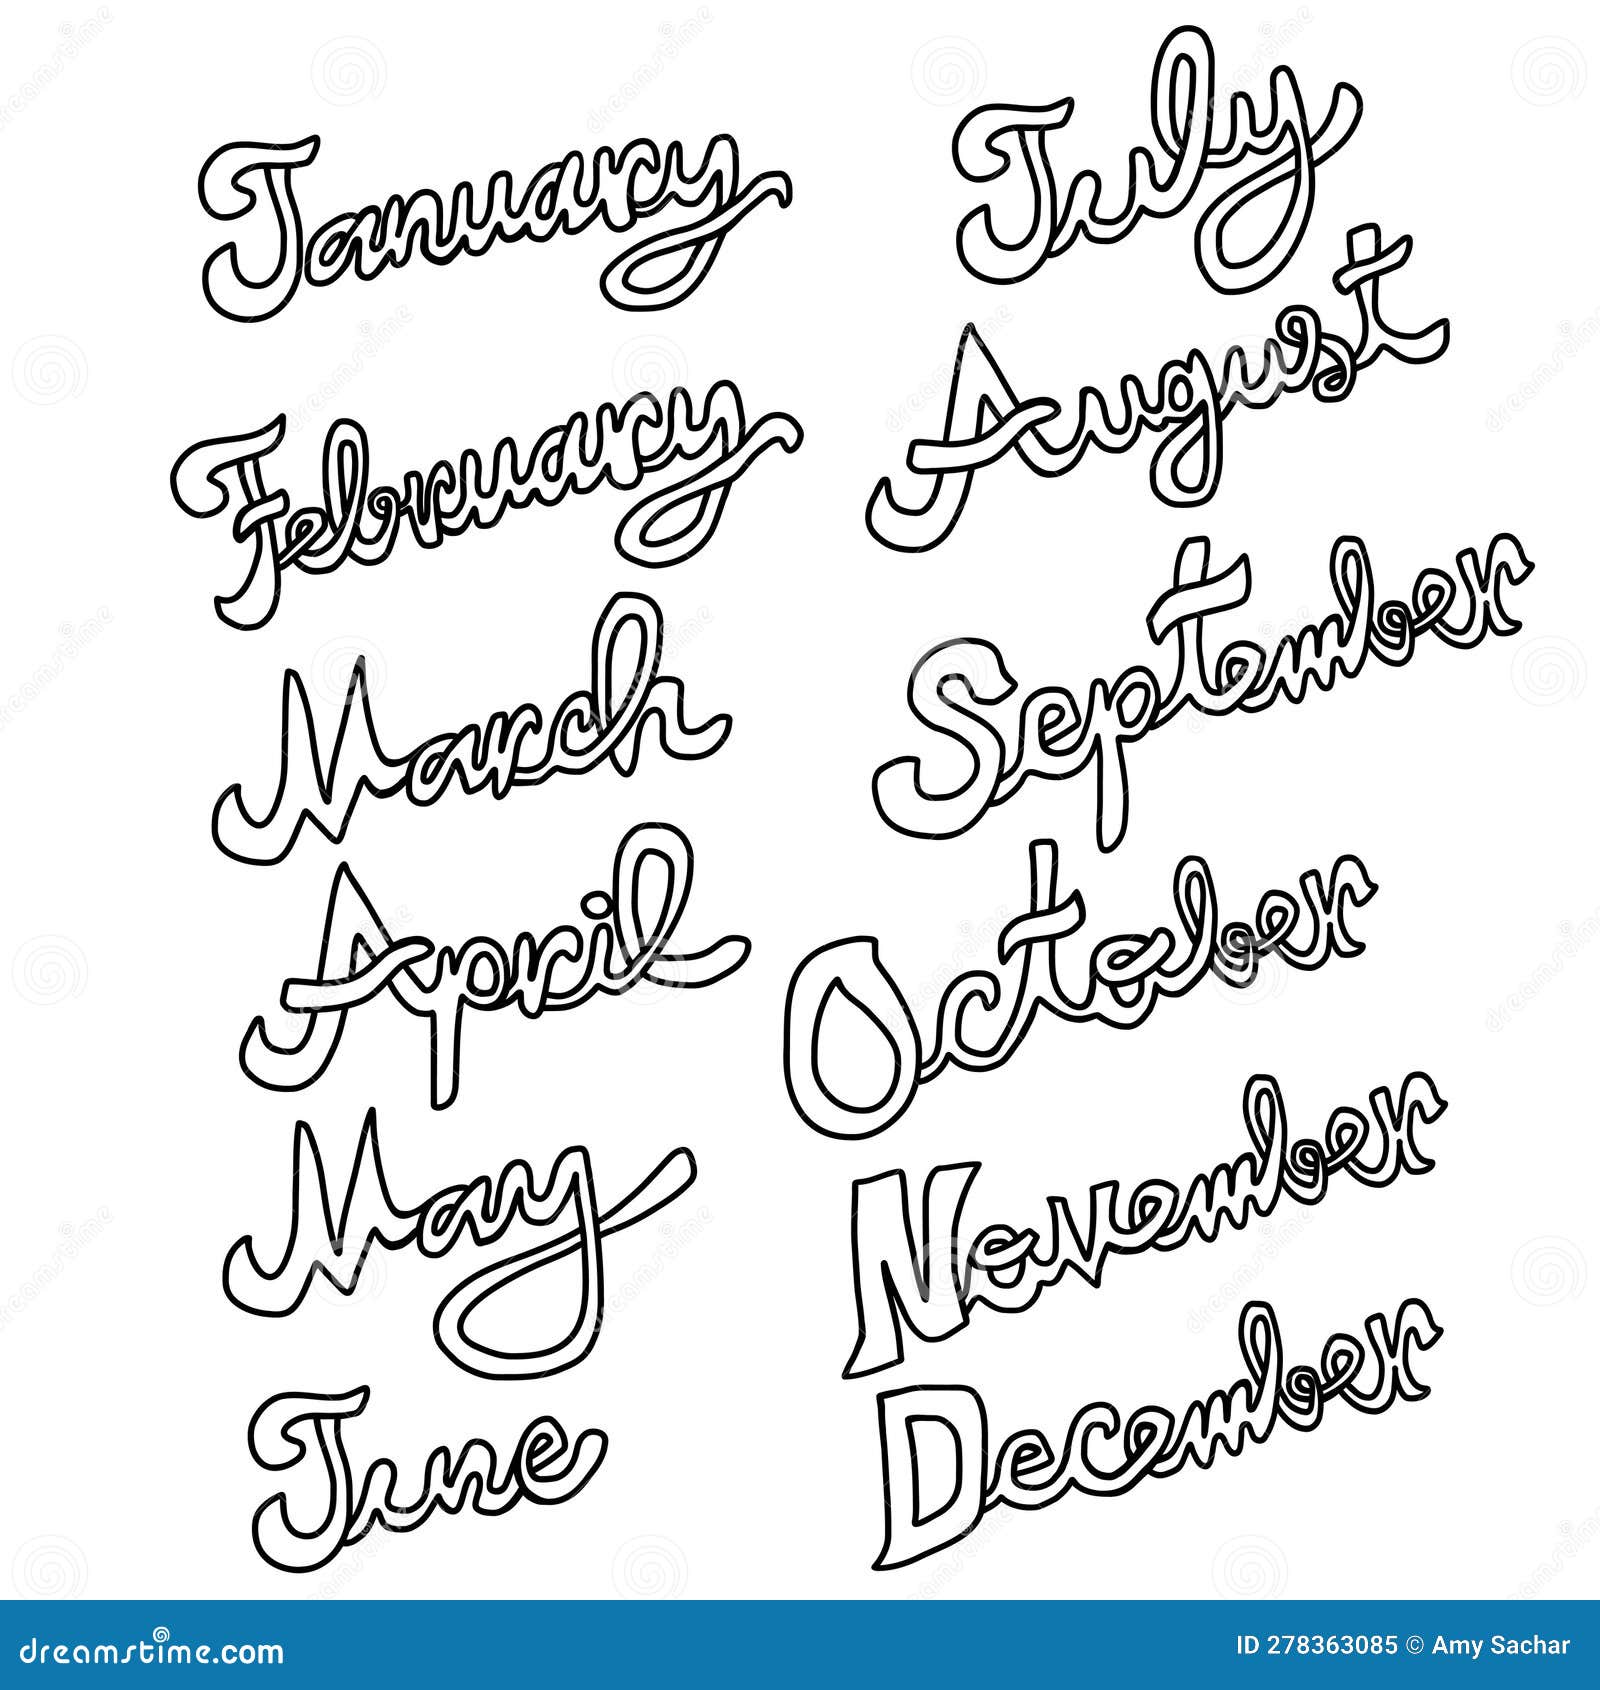 January
February
March
April
May
June
July
August
September
October
November
December
dreamstime.com
ID 278363085 © Amy Sachar